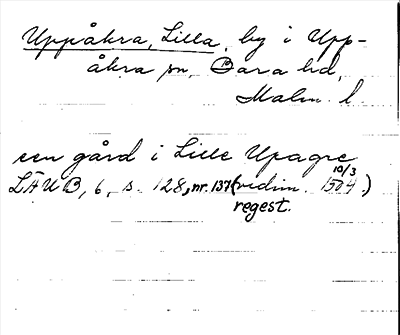 Uppåkra, Lilla, by i Upp-
åkra sn, Bara hd,
Malm. l.
een gård i Lille Upagre
LÄUB, 6, s. 128, nr. 137 (vidim. 10/3 1504)
regest.